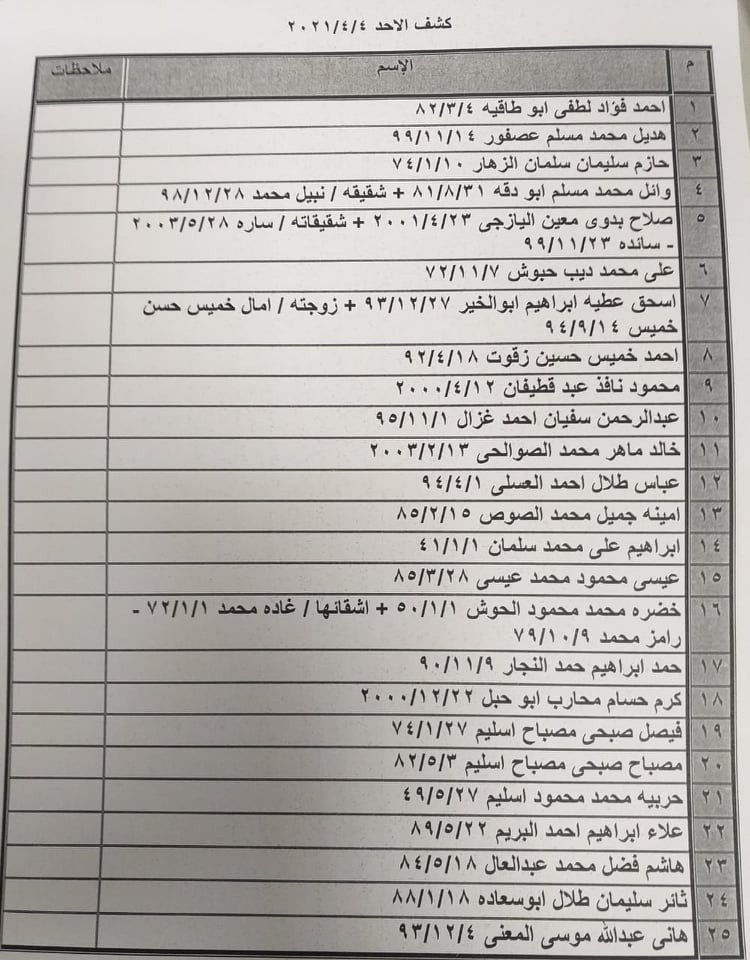 كشف الاحد ٢٠٢١/٤/٤
م الإسم ملاحظات
١ احمد فؤاد لطفى ابو طاقيه ٨٢/٣/٤
٢ هديل محمد مسلم عصفور ٩٩/١١/١٤
٣ حازم سليمان سلمان الزهار ٧٤/١/١٠
٤ وائل محمد مسلم ابو دقه ٨١/٨/٣١ + شقيقه / نبيل محمد ٩٨/١٢/٢٨
٥ صلاح بدوى معين اليازجى ٢٠٠١/٤/٢٣ + شقيقاته / ساره ٢٠٠٣/٥/٢٨
- سانده ٩٩/١١/٢٣
٦ على محمد ديب حبوش ٧٢/١١/٧
٧ اسحق عطيه ابراهيم ابوالخير ٩٣/١٢/٢٧ + زوجته / امال خميس حسن
خميس ٩٤/٩/١٤
٨ احمد خميس حسين زقوت ٩٢/٤/١٨
٩ محمود نافذ عبد قطيفان ٢٠٠٠/٤/١٢
١٠ عبدالرحمن سفيان احمد غزال ٩٥/١١/١
١١ خالد ماهر محمد الصوالحى ٢٠٠٣/٢/١٣
١٢ عباس طلال احمد العسلى ٩٤/٤/١
١٣ امينه جميل محمد الصوص ٨٥/٢/١٥
١٤ ابراهيم على محمد سلمان ٤١/١/١
١٥ عيسى محمود محمد عيسى ٨٥/٣/٢٨
١٦ خضره محمد محمود الحوش ٥٠/١/١ + اشقائها / غاده محمد ٧٢/١/١ -
رامز محمد ٧٩/١٠/٩
١٧ حمد ابراهيم حمد النجار ٩٠/١١/٩
١٨ كرم حسام محارب ابو حبل ٢٠٠٠/١٢/٢٢
١٩ فيصل صبحى مصباح اسليم ٧٤/١/٢٧
٢٠ مصباح صبحى مصباح اسليم ٨٢/٥/٣
٢١ حربيه محمد محمود اسليم ٤٩/٥/٢٧
٢٢ علاء ابراهيم احمد البريم ٨٩/٥/٢٢
٢٣ هاشم فضل محمد عبدالعال ٨٤/٥/١٨
٢٤ ثائر سليمان طلال ابوسعاده ٨٨/١/١٨
٢٥ هانى عبدالله موسى المعنى ٩٣/١٢/٤